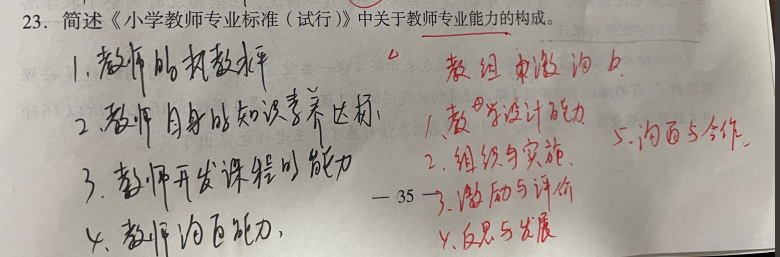 23. 简述《小学教师专业标准（试行）》中关于教师专业能力的构成。
1. 教师的执教水平
2. 教师自身的知识素养达标.
3. 教师开发课程的能力
4. 教师沟通能力.
教组 激沟
1. 教学设计能力
2. 组织与实施.
3. 激励与评价
4. 反思与发展
5. 沟通与合作
— 35 —